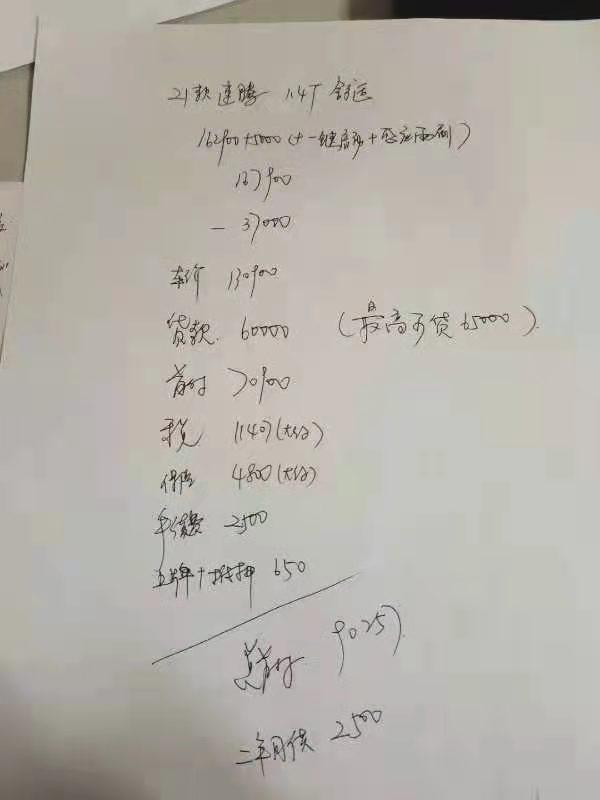 21款速腾 1.4T 舒适
162900+5000(+一键启动+感应雨刷)
167900
- 37000
车价 130900
贷款 60000 (最高可贷 65000)
首付 70900
税 11407(大约)
保险 4800(大约)
手续费 2500
上牌+抵押 650
总首付 90257
二年月供 2500